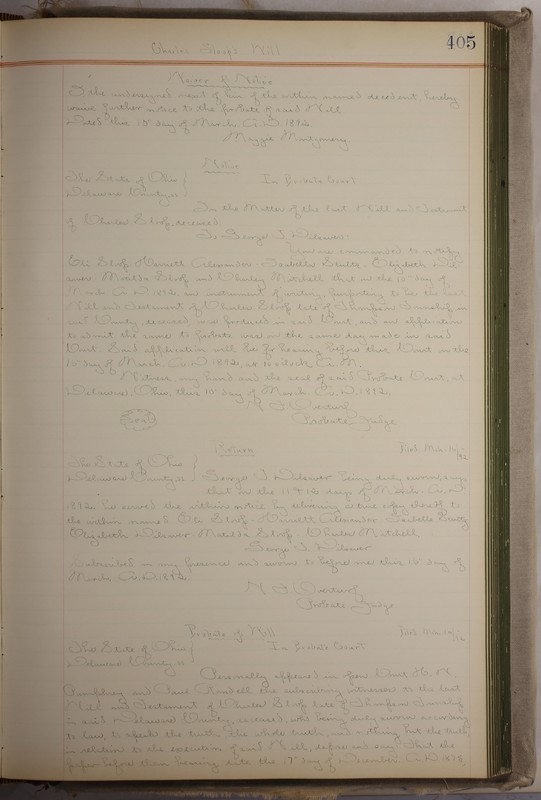 405
Charles Slorf's Will
Waiver of Notice
I the undersigned next of kin of the within named decedent, hereby
waive further notice to the probate of said Will
Dated this 15" day of March A.D. 1892.
Maggie Montgomery.
Notice
The State of Ohio } In Probate Court
Delaware County, ss
In the Matter of the last Will and Testament
of Charles Slorf, deceased
To George J.
You are commanded to notify
Eli Slorf Harriett Alexander Isabella Stultz Elizabeth
Matilda Slorf and Charley Mitchell that on the 10" day of
March A.D. 1892, an instrument of writing, purporting to be the last
Will and Testament of Charles Slorf late of Thompson Township in
said County, deceased, was produced in said Court, and an application
to admit the same to probate was on the same day made in said
Court. Said application will be for hearing before this Court on the
15" day of March A.D. 1892, at 10 o'clock A.M.
Witness, my hand and the seal of said Probate Court, at
Delaware, Ohio, this 10" day of March A.D. 1892.
Seal
Probate Judge
Return
Filed Mch.
The State of Ohio }
Delaware County, ss George J. being duly sworn, says
that on the 11 & 12 days of March A.D.
1892 he served the within notice by delivering a true copy thereof to
the within named Eli Slorf Harriett Alexander Isabella Stultz
Elizabeth Matilda Slorf Charles Mitchell
George J.
Subscribed in my presence and sworn to before me this 15" day of
March A.D. 1892.
Probate Judge
Probate of Will
Filed Mch.
The State of Ohio } In Probate Court
Delaware County ss
Personally appeared in open Court H. A.
Humphrey and Paul Randall the subscribing witnesses to the last
Will and Testament of Charles Slorf late of Thompson Township
in said Delaware County, deceased, who being duly sworn according
to law, to speak the truth, the whole truth, and nothing but the truth,
in relation to the execution of said Will, depose and say, That the
paper before them bearing date the 17" day of December A.D. 1878,